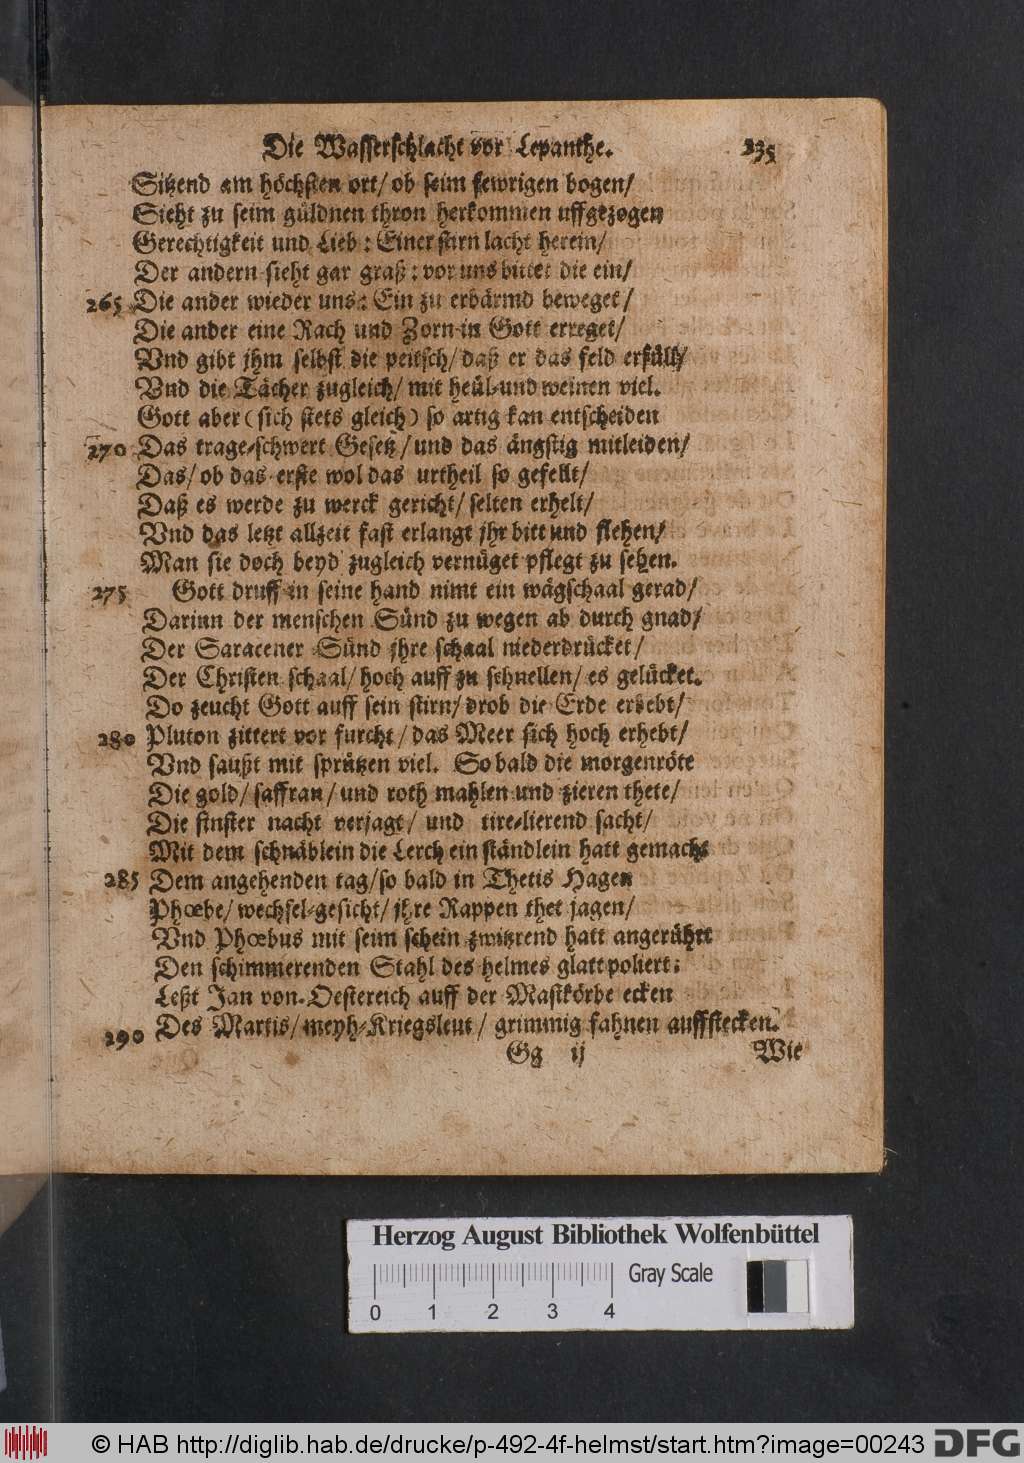 Die Wasserschlacht vor Lepanthe. 235
Sitzend am höchsten ort/ ob seim fewrigen bogen/
Sieht zu seim güldnen thron herkommen uffgezogen
Gerechtigkeit und Lieb: Einer stirn lacht herein/
Der andern sieht gar graß: vor uns bittet die ein/
265 Die ander wieder uns: Ein zu erbärmd beweget/
Die ander eine Rach und Zorn in Gott erreget/
Vnd gibt jhm selbst die peitsch/ daß er das feld erfüll/
Vnd die Tächer zugleich/ mit heül-und weinen viel.
Gott aber (sich stets gleich) so artig kan entscheiden
270 Das trage-schwert Gesetz/ und das ängstig mitleiden/
Das/ ob das erste wol das urtheil so gefellt/
Daß es werde zu werck gericht/ selten erhelt/
Vnd das letzt allzeit fast erlangt jhr bitt und flehen/
Man sie doch beyd zugleich vernüget pflegt zu sehen.
275 Gott druff in seine hand nimt ein wägschaal gerad/
Darinn der menschen Sünd zu wegen ab durch gnad/
Der Saracener Sünd jhre schaal niederdrücket/
Der Christen schaal/ hoch auff zu schnellen/ es gelücket.
Do zeucht Gott auff sein stirn/ drob die Erde erbebt/
280 Pluton zittert vor furcht/ das Meer sich hoch erhebt/
Vnd saußt mit sprützen viel. So bald die morgenröte
Die gold/ saffran/ und roth mahlen und zieren thete/
Die finster nacht verjagt/ und tire-lierend sacht/
Mit dem schnäblein die Lerch ein ständlein hatt gemacht
285 Dem angehenden tag/ so bald in Thetis Hagen
Phœbe/ wechsel-gesicht/ jhre Rappen thet jagen/
Vnd Phœbus mit seim schein zwitzrend hatt angerührt
Den schimmerenden Stahl des helmes glatt poliert:
Leßt Jan von Oestereich auff der Mastkörbe ecken
290 Des Martis/ meyh-Kriegsleut/ grimmig fahnen auffstecken.
Gg ij Wie
Herzog August Bibliothek Wolfenbüttel
Gray Scale
0 1 2 3 4
© HAB http://diglib.hab.de/drucke/p-492-4f-helmst/start.htm?image=00243 DFG